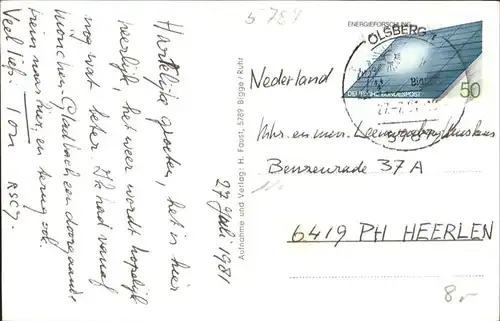 5784
Hartelijke groeten, het is hier
heerlijk, het weer wordt hopelijk
nog wat beter. Ik had vanaf
München-Gladbach een doorgaande
trein naar hier, en terug ook.
Veel liefs. Ton
27 Juli 1981
Aufnahme und Verlag: H. Faust, 5789 Bigge/Ruhr
ENERGIEFORSCHUNG
DEUTSCHE BUNDESPOST
50
OLSBERG 1
5787
Nederland
Mhr. en mevr.
Benzenrade 37A
6419 PH HEERLEN
8,-